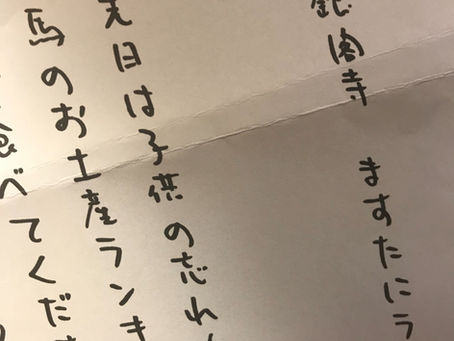 銀閣寺 ますたにラ
先日は子供の忘れ
馬のお土産ランキ
食べてくだ